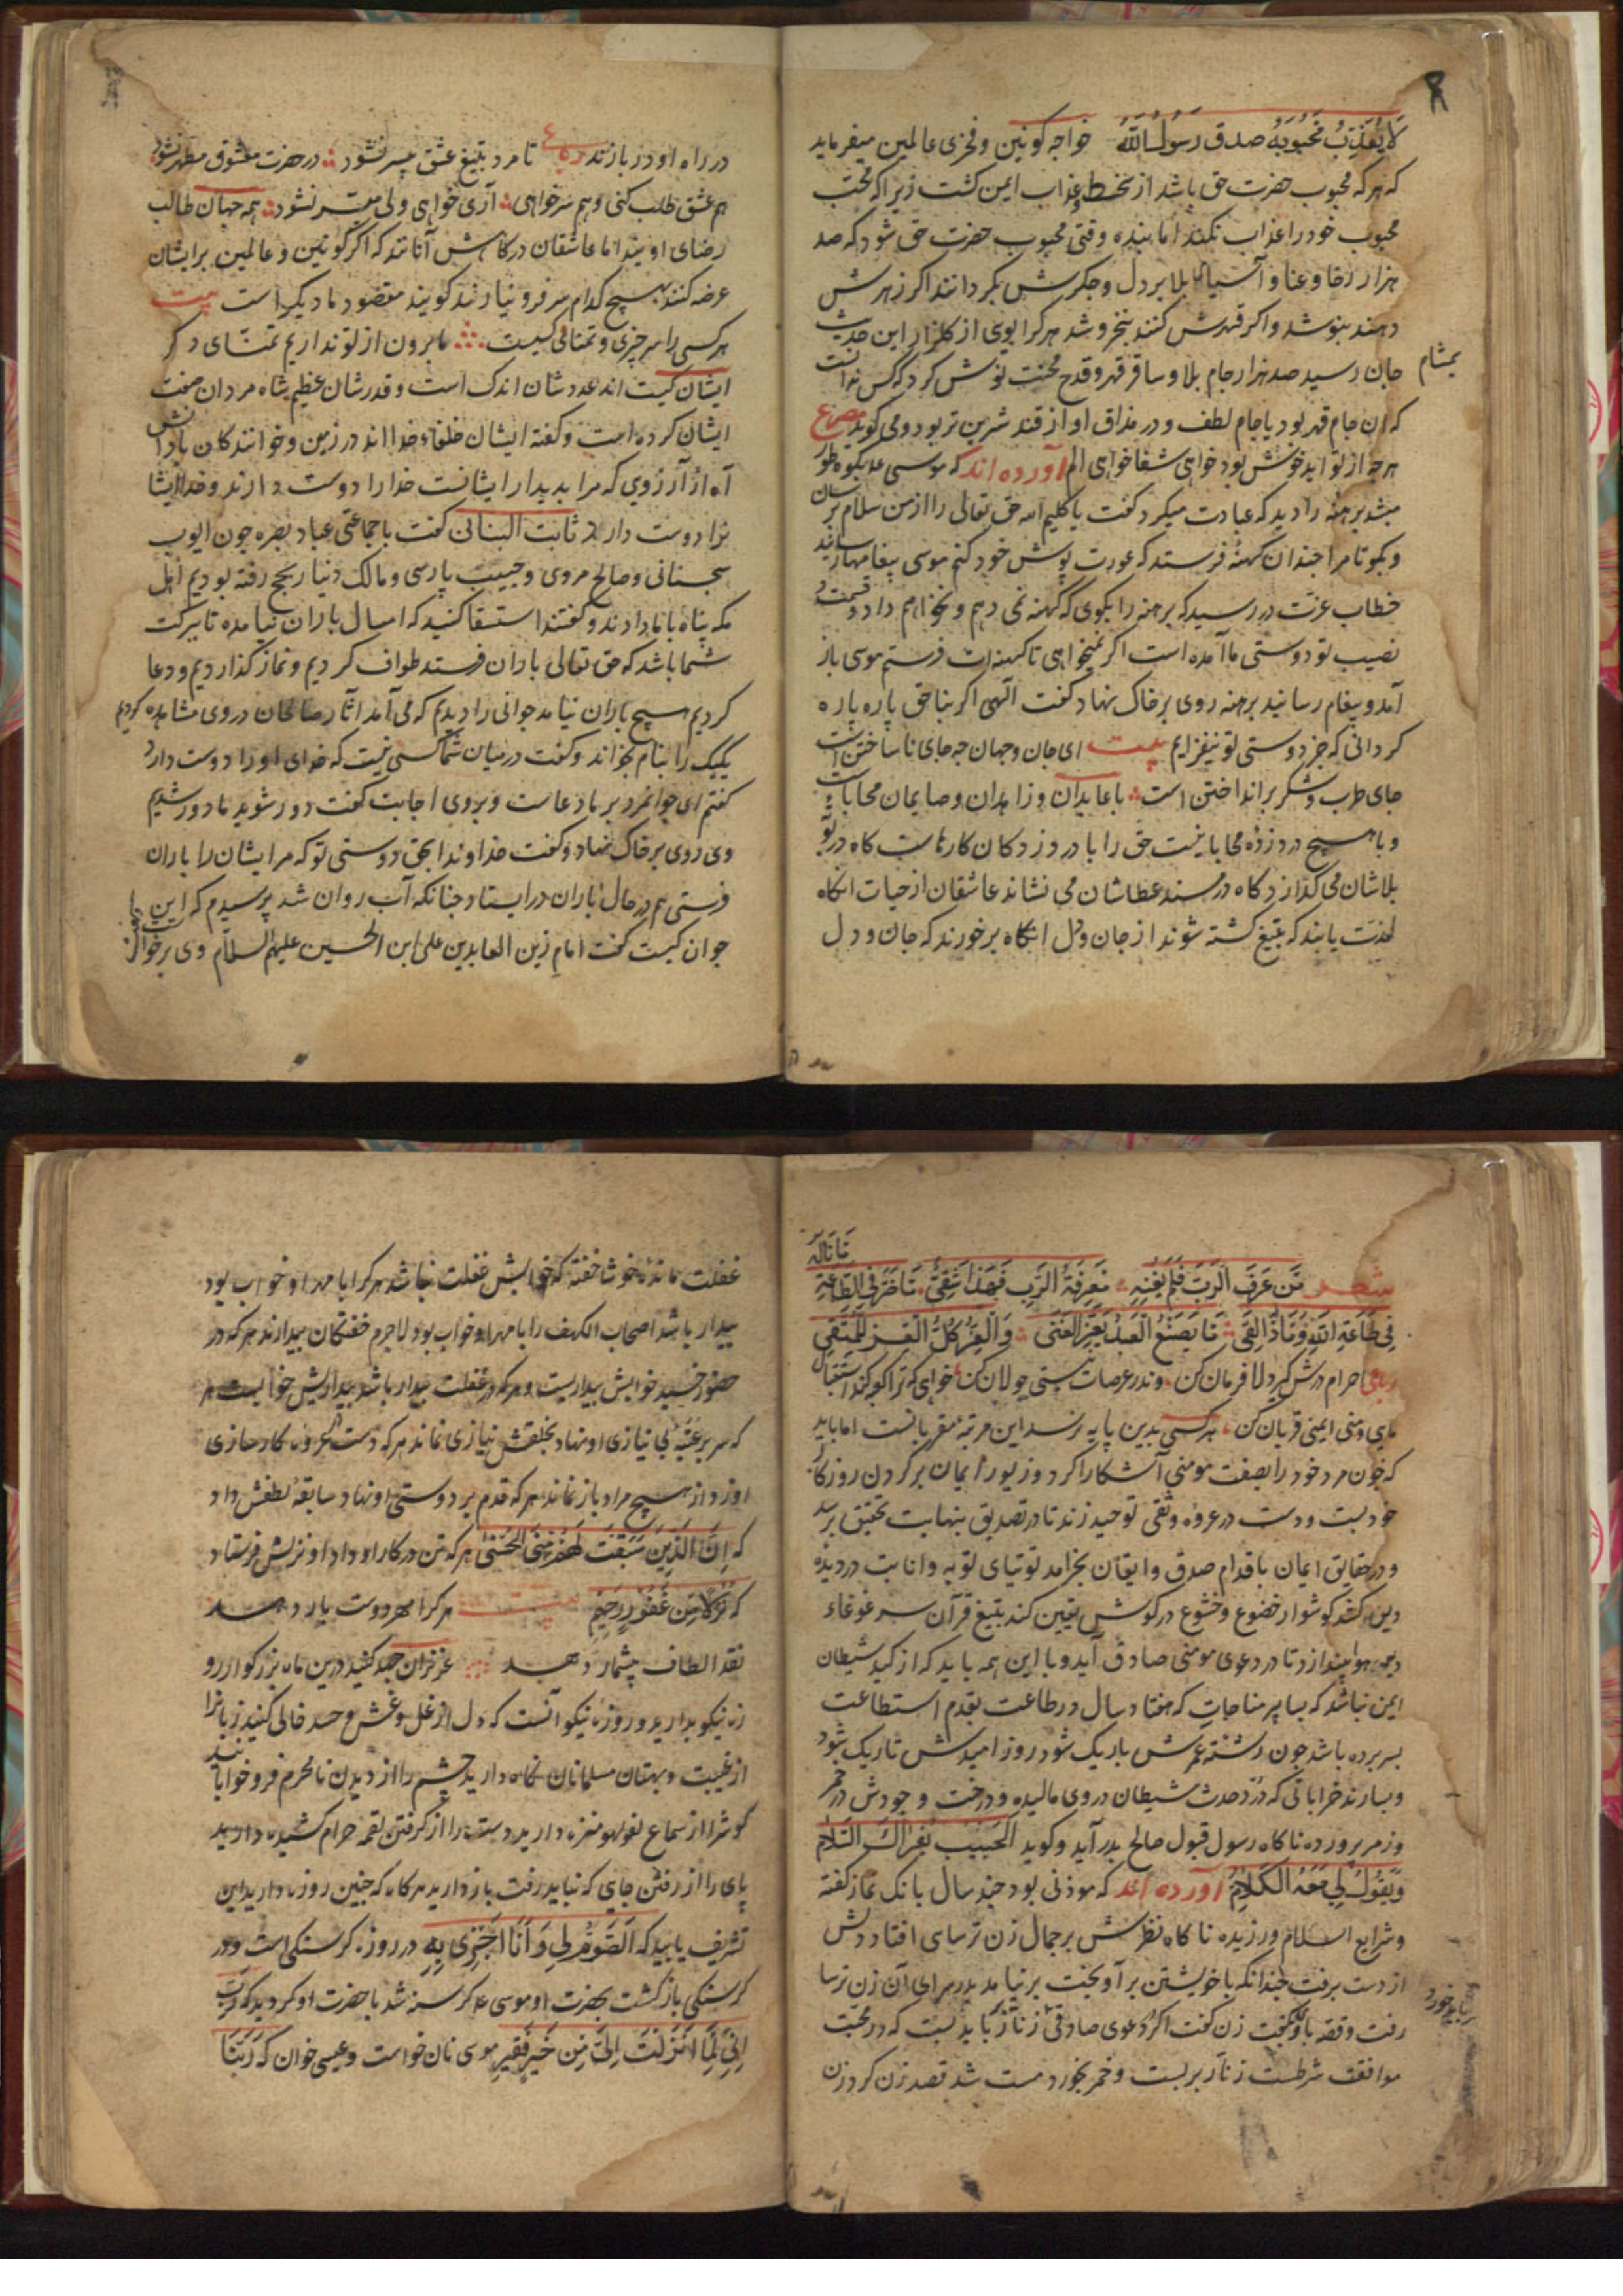 لَا يُعَذِّبُ مَحْبُوبَهُ صدق رَسُولُ اللَّهُ خواجه کونین و فخری عالمین میفرماید
که هرکه محبوب حضرت حق باشد از سخط و عذاب ایمن کشت زیراکه محب
محبوب خود را عذاب نکند اما بنده وقتی محبوب حضرت حق شود که صد
هزار رخا و عنا و آسیای بلا بر دل و جکرش بکردانند اکر زهرش
دهند بنوشد و اکر قهرش کنند بنخروشد هرکرا بوی از کلزار این حدیث
بمشام
جان رسید صد هزار جام بلا و ساقر قهر و قدح محنت نوش کرد که کس ندانست
که ان جام قهر بود یا جام لطف و در مذاق او از قند شیرین تر بود و می کوید مصرع
هرچه از تو آید خوش بود خواهی شفا خواهی الم آورده اند که موسی علم بکوه طور
میشد برهنه را دید که عبادت میکرد کفت یا کلیم الله حق تعالی را از من سلام برسان
و بکو تا مرا چندان کهنه فرستد که عورت پوش خود کنم موسی پیغامها رسانید
خطاب عزت در رسید که برهنه را بکوی که کهنه نمی دهم و نخواهم داد و قسمت و
نصیب تو دوستی ما آمده است اکر نمیخواهی تا کهنه ات فرستم موسی باز
آمد و پیغام رسانید برهنه روی بر خاک نهاد کفت الهی اکر بناحق پاره پاره
کردانی که جز دوستی تو نیفزایم بیت ای جان و جهان چه جای ناساختن است
جای طرب و شکر برانداختن است با عابدان و زاهدان و صایمان محابات
و با هیچ درد زده محابا نیست حق را با درد زدکان کارهاست کاه در بوته
بلاشان می کدازد کاه در مسند عطاشان می نشاند عاشقان از حیات انکاه
لذت یابند که بتیغ کشته شوند از جان و دل انکاه برخورند که جان و دل
در راه او در بازند رباعی تا مرد بتیغ عشق بی سر نشود در حضرت معشوق مطهر نشود
هم عشق طلب کنی و هم سر خواهی آری خواهی ولی میسر نشود همه جهان طالب
رضای او یند اما عاشقان درکاهش آنانند که اکر کونین و عالمین بر ایشان
عرضه کنند بهیچ کدام سر فرو نیارند کویند مقصود ما دیکر است بیت
هرکسی را سر چیزی و تمنای کسیست ما برون از تو نداریم تمنای دکر
ایشان کیست اند عددشان اندک است و قدرشان عظیم شاه مردان صفت
ایشان کرده است و کفته ایشان خلفاء خدا اند در زمین و خوانندکان با دانش
آه از آرزوی که مرا بدیدار ایشانست خدا را دوست دارند و خدا ایشا
نرا دوست دارد ثابت البنانی کفت با جماعتی عباد بصره چون ایوب
سجستانی و صالح مروی و حبیب پارسی و مالک دنیار بحج رفته بودیم اهل
مکه پناه بما دادند و کفتند استسقا کنید که امسال باران نیامده تا ببرکت
شما باشد که حق تعالی باران فرستد طواف کردیم و نماز کذاردیم و دعا
کردیم هیچ باران نیامد جوانی را دیدیم که می آمد آثار صالحان در وی مشاهده کردیم
یکیک را بنام بخواند و کفت در میان شما کسی نیست که خدای او را دوست دارد
کفتم ای جوانمرد بر ما دعاست و بر وی اجابت کفت دور شوید ما دور شدیم
وی روی بر خاک نهاد و کفت خداوندا بحق دوستی تو که مر ایشان را باران
فرستی هم در حال باران در ایستاد چنانکه آب روان شد پرسیدم که این
جوان کیست کفت امام زین العابدین علی ابن الحسین علیهم السلام وی برخواست
شعر مَن عَرَفَ الرَّبَّ فَلَم يُغنِهِ مَعرِفَةُ الرَّبِّ فَهَذَا شَقِيُّ مَا ضَرَّ فِي الطَّاعَةِ
مَا نَالَهُ
فِي طَاعَةِ اللهِ وَمَاذَا لَقِي مَا يَصنَعُ العَبدُ بِعِزِّ الغِنَى وَالعِزُّ كُلُّ العِزِّ لِلمُتَّقِي
رباعی احرام درش کیر دلا فرمان کن وندر عرصات نیستی جولان کن خواهی که ترا کعبه کند استقبال
مایی و منی ایمنی قربان کن هرکسی بدین پایه نرسد این مرتبه مقربانست اما باید
که چون مرد خود را بصفت مومنی آشکارا کرد و زیور ایمان بر کردن روزکار
خود بست و دست در عروه وثقی توحید زند تا در تصدیق بنهایت تحقیق برسد
و در حقایق ایمان باقدام صدق و ایقان بخرامد توتیای توبه و انابت در دیده
دین کشد کوشوار خضوع و خشوع در کوش یقین کند بتیغ قرآن سر غوغاء
دیو هوا بیندازد تا در دعوی مومنی صادق آید و با این همه باید که از کید شیطان
ایمن نباشد که بسا پیر مناجات که هفتاد سال در طاعت بقدم استطاعت
بسر برده باشد چون رشته عمرش باریک شود روز امیدش تاریک شود
و بسا رند خراباتی که درد حدث شیطان در روی مالیده و درخت وجودش در خمر
و زمر پرورده ناکاه رسول قبول صالح بدر آید و کوید الحَبِيبُ يُقرِئُكَ السَّلَامَ
وَيَقُولُ لِي مَعَهُ الكَلَامُ آورده اند که موذنی بود چند سال بانک نماز کفته
و شرایع اسلام ورزیده ناکاه نظرش بر جمال زن ترسای افتاد دلش
از دست برفت چندانکه با خویشتن برآویخت برنیامد بدر سرای آن زن ترسا
رفت و قصه با او بکفت زن کفت اکر دعوی صادقی زنار باید بست که در محبت
می باید خورد
موافقت شرطست زنار بربست و خمر بخورد مست شد قصد زن کرد زن
غفلت مانده خوشا خفته که خوابش غفلت نباشد هرکرا با مهر او خواب بود
بیدار باشد اصحاب الکهف را با مهر او خواب بود لاجرم خفتکان بیدارند هرکه در
حضور خسبد خوابش بیداریست و هرکه در غفلت بیدار باشد بیداریش خوابست هر
که سر بر عتبه بی نیازی او نهاد بخلقش نیازی نماند هرکه دست بعروه کارسازی
او زد از هیچ مراد باز نماند هرکه قدم بر دوستی او نهاد سابقه لطفش داد
که اِنَّ الَّذِينَ سَبَقَت لَهُم مِنَّا الحُسنَى هرکه تن در کار او داد او نزلش فرستاد
که نُزُلًا مِن غَفُورٍ رَحِيمٍ بیت هرکرا مهر دوست یار دهد
نقد الطاف بیشمار دهد عزیزان جهد کنید درین ماه بزرکوار رو
زه نیکو بدارید و روزه نیکو آنست که دل از غل و غش و حسد خالی کنید زبانرا
از غیبت و بهتان مسلمانان نکاه دارید چشم را از دیدن نامحرم فرو خوابانید
کوشرا از سماع لغو و لهو منزه دارید دست را از کرفتن لقمه حرام کشیده دارید
پای را از رفتن جای که نباید رفت باز دارید هرکاه که چنین روزه دارید این
تشریف یابید که الصَّومُ لِي وَأَنَا أَجزِي بِهِ در روزه کرسنکی است و در
کرسنکی بازکشت بحضرت او موسی علم کرسنه شد با حضرت او کردید که رَبِّ
اِنِّي لِمَا اَنزَلتَ اِلَيَّ مِن خَيرٍ فَقِيرٌ موسی نان خواست و عیسی خوان که رَبَّنَا